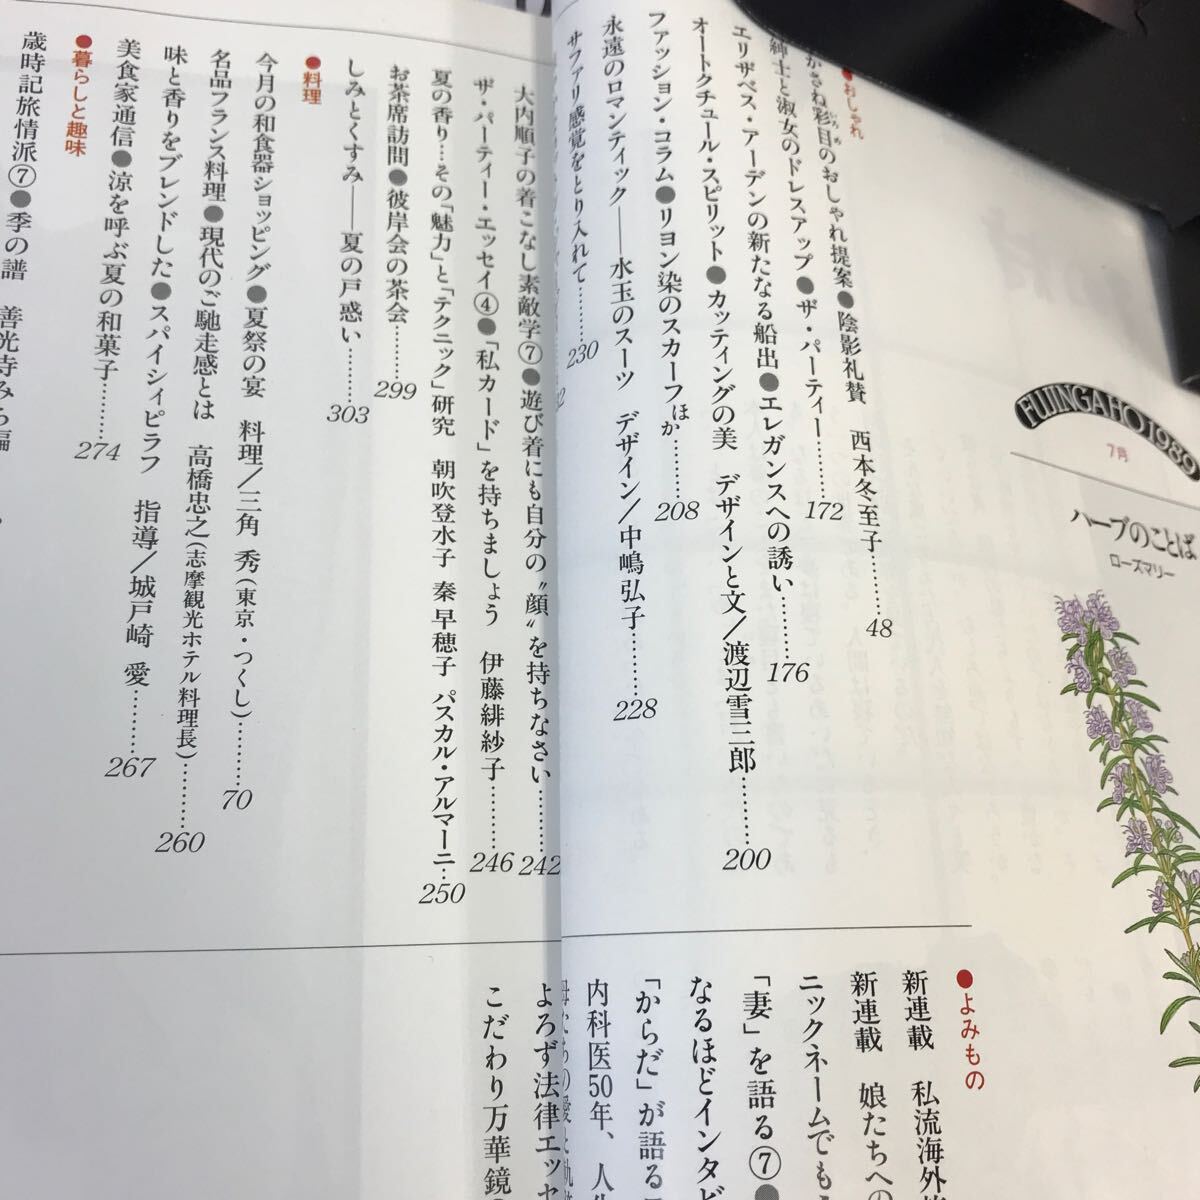 FUJINGAHO 1989
7月
ハーブのことば
ローズマリー
●おしゃれ
かさね彩目のおしゃれ提案●陰影礼賛 西本冬至子………48
紳士と淑女のドレスアップ●ザ・パーティー………172
エリザベス・アーデンの新たなる船出●エレガンスへの誘い………176
オートクチュール・スピリット●カッティングの美 デザインと文/渡辺雪三郎………200
ファッション・コラム●リヨン染のスカーフほか………208
永遠のロマンティック――水玉のスーツ デザイン/中嶋弘子………228
サファリ感覚をとり入れて………230
大内順子の着こなし素敵学⑦●遊び着にも自分の“顔”を持ちなさい………242
ザ・パーティー・エッセイ④●「私カード」を持ちましょう 伊藤緋紗子………246
夏の香り…その「魅力」と「テクニック」研究 朝吹登水子 秦早穂子 パスカル・アルマーニ…250
お茶席訪問●彼岸会の茶会………299
しみとくすみ――夏の戸惑い………303
●料理
今月の和食器ショッピング●夏祭の宴 料理/三角 秀(東京・つくし)………70
名品フランス料理●現代のご馳走感とは 高橋忠之(志摩観光ホテル料理長)………260
味と香りをブレンドした●スパイシィピラフ 指導/城戸崎 愛………267
美食家通信●涼を呼ぶ夏の和菓子………274
●暮らしと趣味
歳時記旅情派⑦●季の譜 善光寺みち編
●よみもの
新連載 私流海外
新連載 娘たちへの
ニックネームでも
「妻」を語る⑦●
なるほどインタビ
「からだ」が語る
内科医50年、人
よろず法律エッセ
こだわり万華鏡